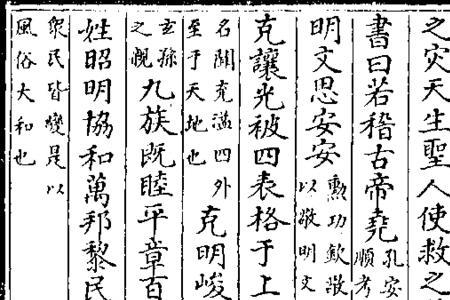 之灾天生聖人使救之
書曰若稽古帝堯
孔安
順考
明文思安安
勲功欽敬
以敬明文
克讓光被四表格于上
名聞充溢四外
至于天地也
克明峻
玄孫
之親
九族既睦平章百
姓昭明協和萬邦黎民
衆民皆變是以
風俗大和也